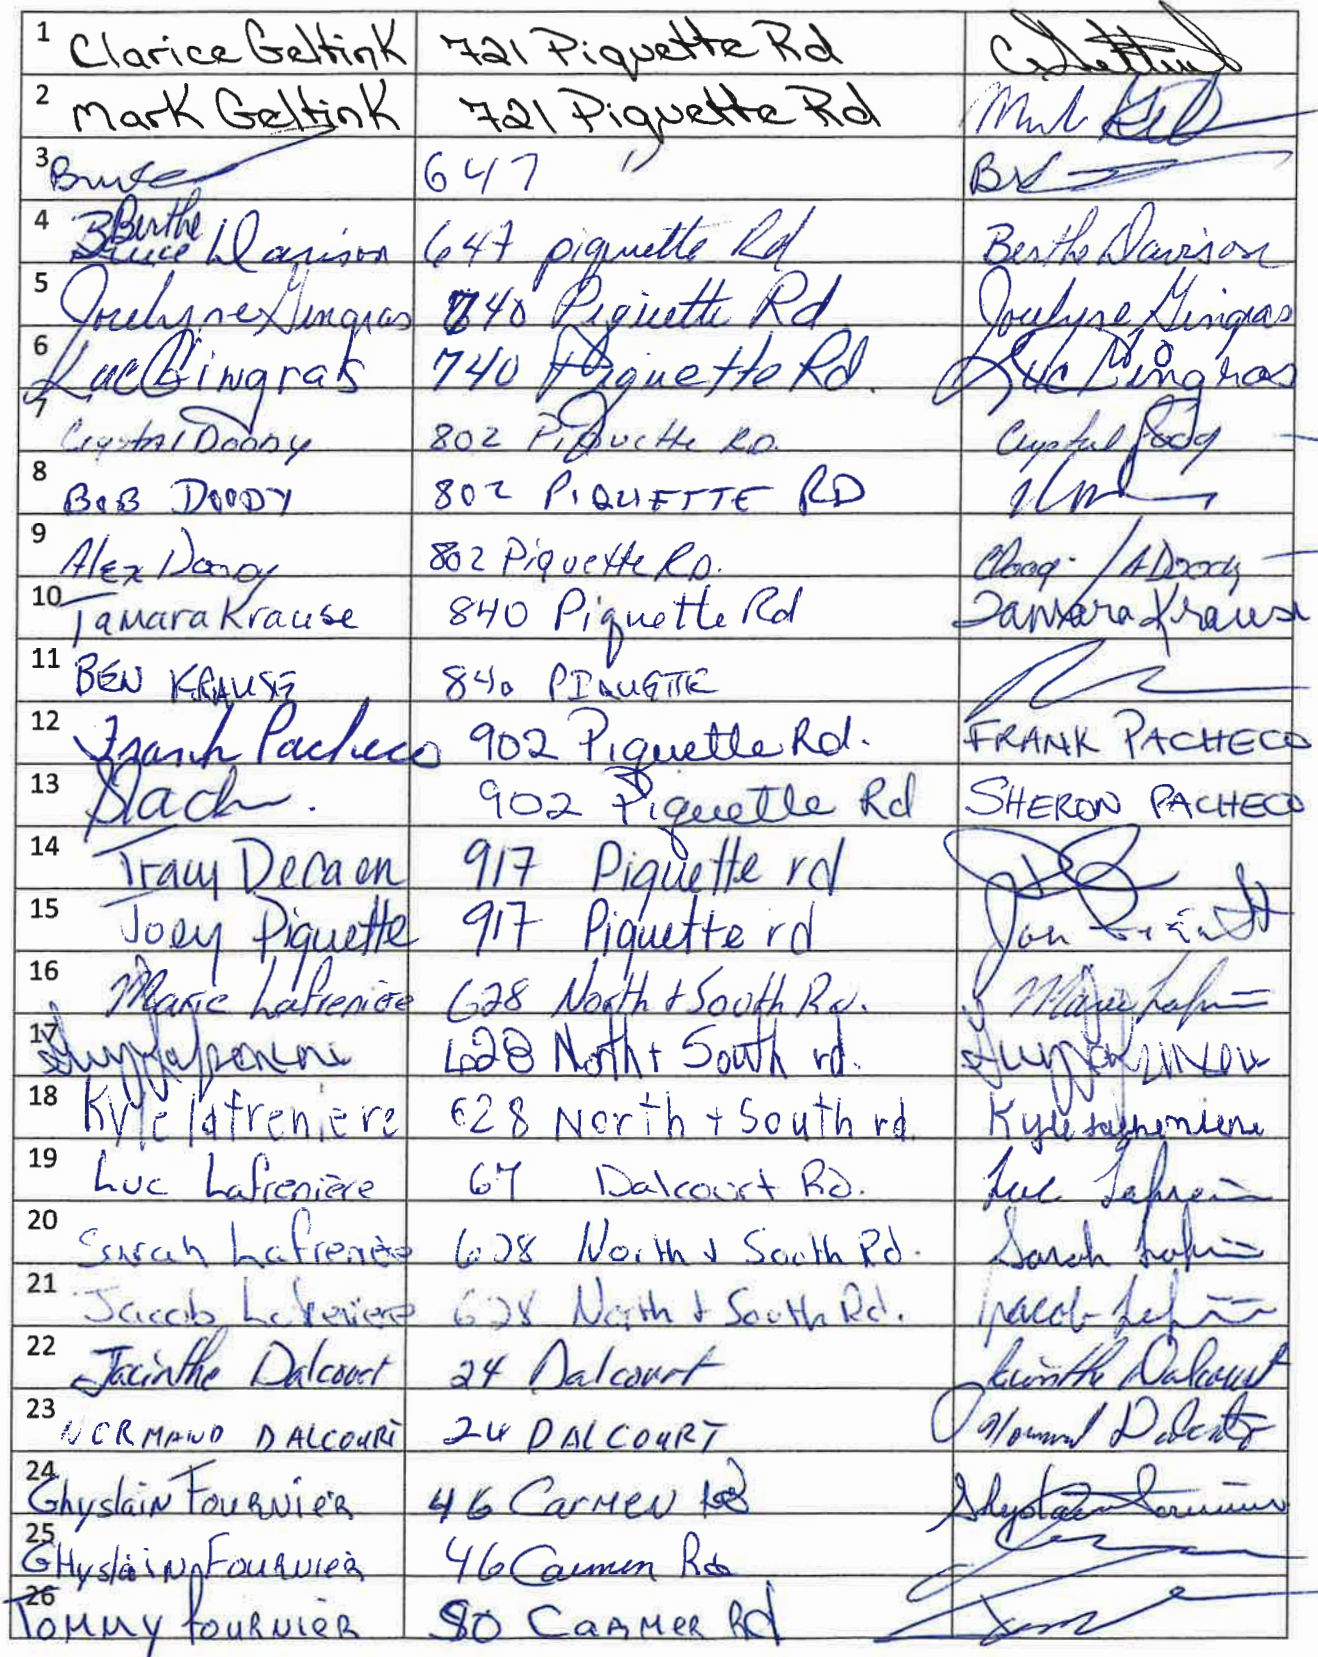 1 Clarice Geltink 721 Piquette Rd
2 Mark Geltink 721 Piquette Rd
3 Bruce 647 "
4 Berthe Davison 647 piquette Rd Berthe Davison
5 Jocelyne Gingras 740 Piquette Rd Jocelyne Gingras
6 Luc Gingras 740 Piquette Rd. Luc Gingras
7 Crystal Doody 802 Piquette RD. Crystal
8 BOB DOODY 802 PIQUETTE RD
9 Alex Doody 802 Piquette RD. / A Doody
10 Tamara Krause 840 Piquette Rd Tamara Krause
11 BEN KRAUSE 840 PIQUETTE
12 Frank Pacheco 902 Piquette Rd. FRANK PACHECO
13 902 Piquette Rd SHERON PACHECO
14 Tracy Decaen 917 Piquette rd
15 Joey Piquette 917 Piquette rd
16 Marie Lafrenière 628 North + South Rd. Marie
17 628 North + South rd.
18 Kyle lafreniere 628 North + South rd Kyle
19 Luc Lafrenière 67 Dalcourt RD. Luc
20 Sarah Lafrenière 628 North + South Rd. Sarah
21 Jacob Lafreniere 628 North + South Rd. Jacob
22 Jacinthe Dalcourt 24 Dalcourt Jacinthe Dalcourt
23 NORMAND DALCOURT 24 DALCOURT
24 Ghyslain FOURNIER 46 CarMeN Rd Ghyslain
25 GHyslaiN FOURNIER 46 Carmen Rd
26 TOMMY FOURNIER 80 CARMEN Rd